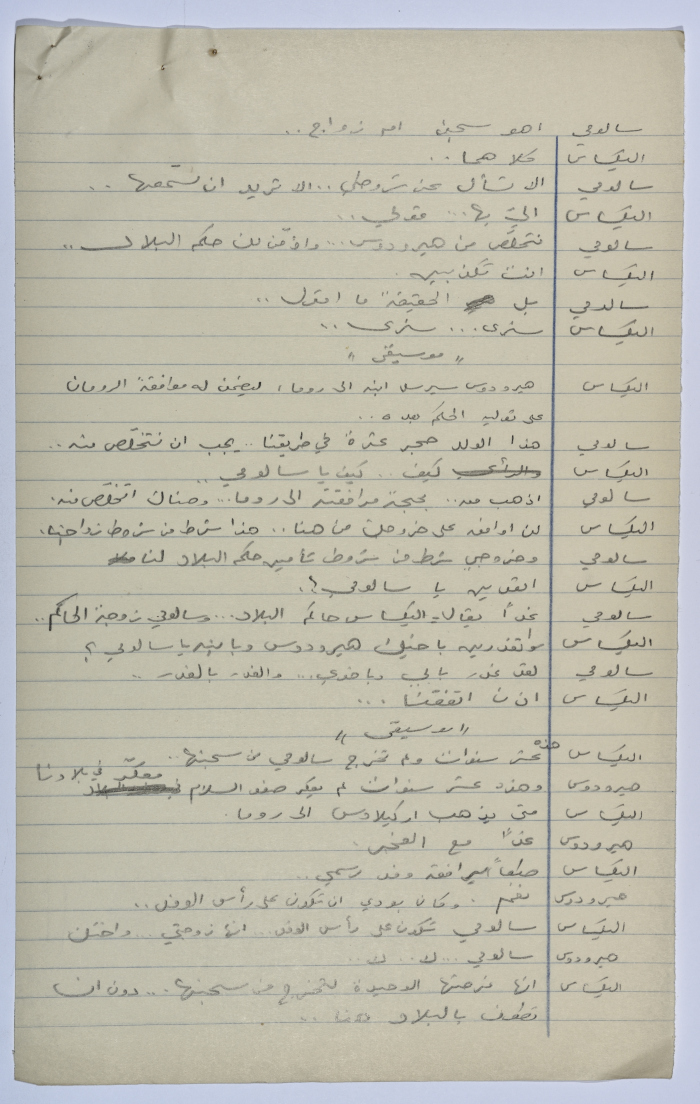 سالومي اهو سجن ام زواج ..
اليكساس كلاهما ..
سالومي الا تسأل عن شروطي .. الا تريد ان تسمعها ..
اليكساس اليّ بها ... قولي ..
سالومي نتخلّص من هيرودوس ... واؤمّن لك حكم البلاد ..
اليكساس انت تكذبين .
سالومي بل الحقيقة ما اقول ..
اليكساس سنرى ... سنرى ..
" موسيقى "
اليكساس هيرودوس سيرسل ابنه الى روما ، ليضمن له موافقة الرومان
على توليه الحكم بعده ..
سالومي هذا الولد حجر عثرة في طريقنا .. يجب ان نتخلّص منه ..
اليكساس كيف .. كيف يا سالومي ..
سالومي اذهب معه .. بحجة مرافقته الى روما ... وهناك اتخلّص منه .
اليكساس لن اوافق على خروجك من هنا .. هذا شرط من شروط زواجنا .
سالومي وخروجي شرط من شروط تأمين حكم البلاد لنا
اليكساس اتغدرين يا سالومي ؟ .
سالومي غداً يقال : اليكساس حاكم البلاد ... وسالومي زوجة الحاكم ..
اليكساس اتغدرين باخيك هيرودوس وبابنه يا سالومي ؟
سالومي لقد غدر بابي وباخوي ... والغدر بالغدر ..
اليكساس اذن اتفقنا ...
" موسيقى "
اليكساس هذه عشر سنوات ولم تخرج سالومي من سجنها ..
هيرودوس وهذه عشر سنوات لم يعكر صفو السلام معكّر في بلادنا
اليكساس متى يذهب اركيلاوس الى روما .
هيرودوس غداً مع الفجر .
اليكساس طبعاً يرافقه وفد رسمي ..
هيرودوس نعم . وكان بودي ان تكون على رأس الوفد ..
اليكساس سالومي تكون على رأس الوفد ... انها زوجتي .. واختك
هيرودوس سالومي ... لا .. لا ..
اليكساس انها فرصتها الوحيدة لتخرج من سجنها ... دون ان
تطوف بالبلاد هنا ...